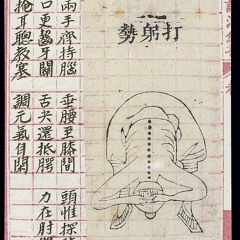 打躬勢
兩手齊持腦 垂腰至膝間 頭惟探
口更齧牙關 舌尖還抵齶 力在肘
掩耳聰教塞 調元氣自閑